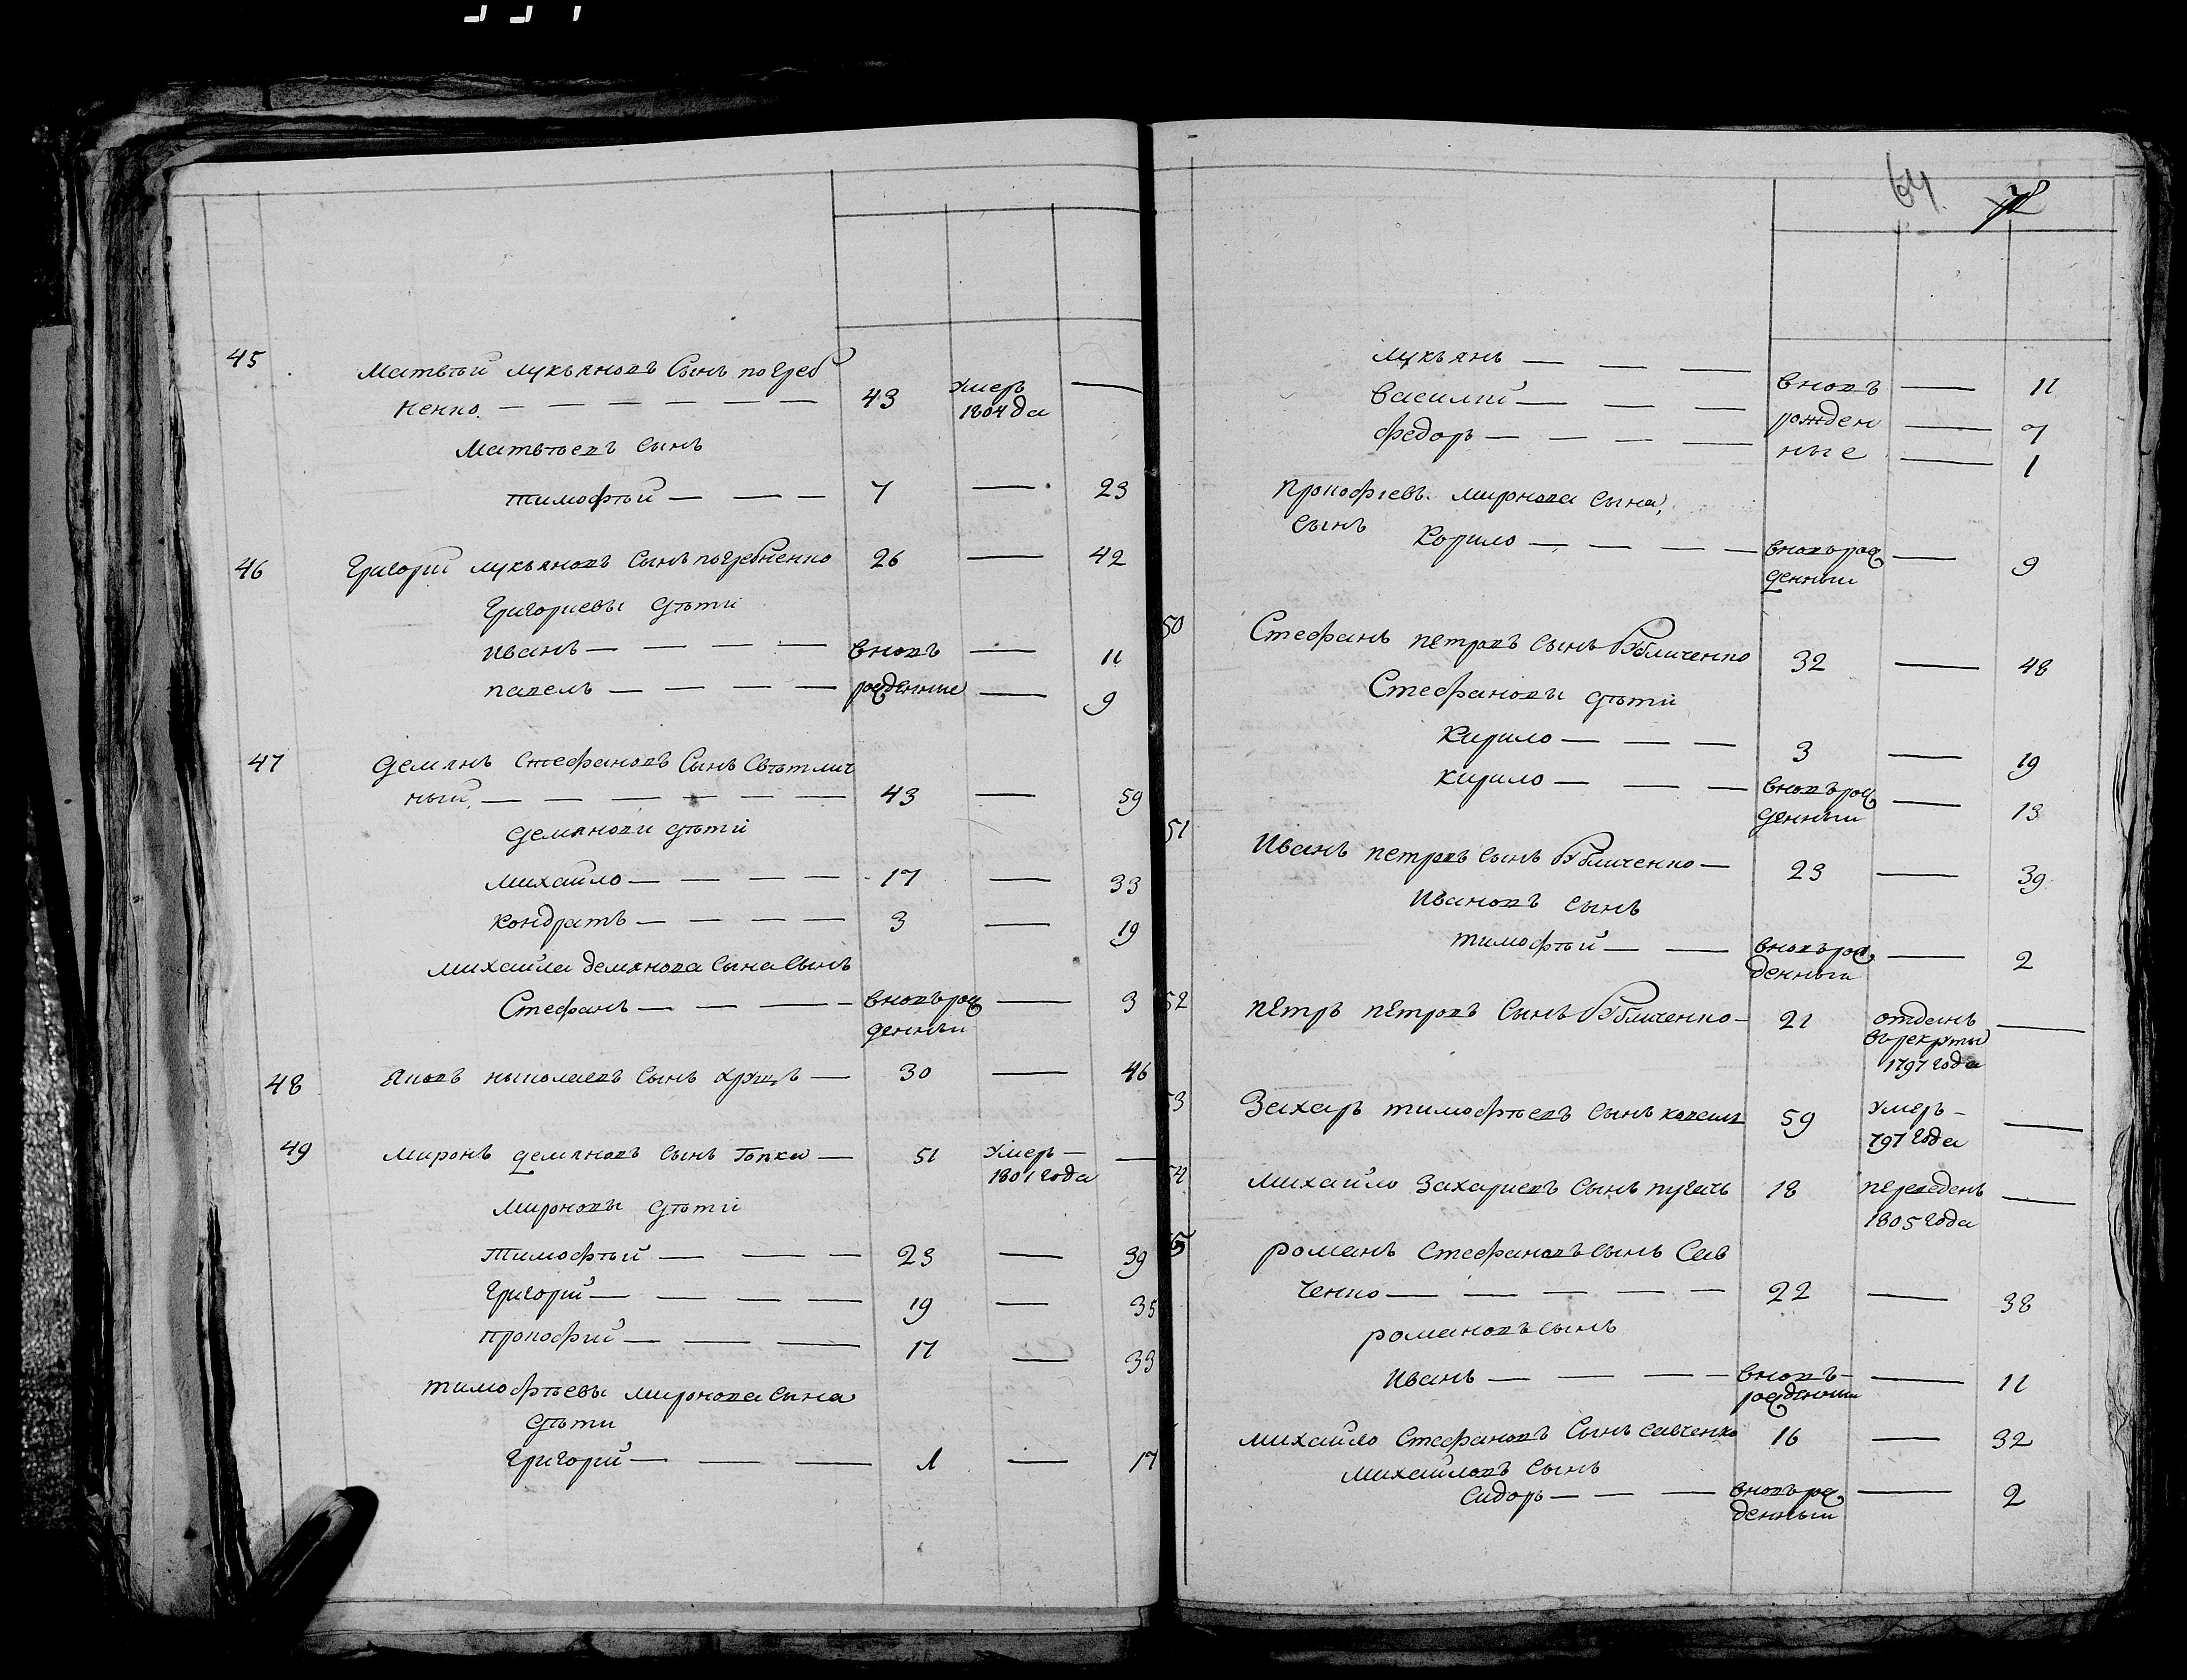 45 Матвей Лукьяновъ Сынъ Погреб
ненко. — 43 умеръ 1804 да —
Матвеевъ Сынъ
Тимофей — 7 — 23
46 Григорий Лукьяновъ Сынъ Погребненко 26 — 42
Григориевы дѣти
Иванъ — вновь — 11
Павелъ — рожденные — 9
47 Демянъ Стефановъ Сынъ Свѣтлич
ный. — 43 — 59
Демяновы дѣти
Михайло — 17 — 33
Кондратъ — 3 — 19
Михайла Демянова Сына Сынъ
Стефанъ — вновьрож — 3
денный
48 Яковъ Николаевъ Сынъ Хрущъ — 30 — 46
49 Миронъ Демяновъ Сынъ — 51 умеръ — 1801 года —
Мироновы дѣти
Тимофей — 23 — 39
Григорий — 19 — 35
Прокофий — 17 — 33
Тимофеевы Миронова Сына
дѣти
Григорий — 1 — 17
64 78
Лукьянъ — вновь — 11
Василий — рожден — 7
Федоръ — ные — 1
Прокофиевъ Миронова Сына,
Сынъ Корило — вновьрож — 9
денный
50 Стефанъ Петровъ Сынъ 32 — 48
Стефановы дѣти
Кирило — 3 — 19
Кирило — вновьрож — 13
денный
51 Иванъ Петровъ Сынъ — 23 — 39
Ивановъ Сынъ
Тимофей — вновьрож — 2
денный
52 Петръ Петровъ Сынъ — 21 отданъ —
въ рекруты
1797 года
53 Захаръ Тимофеевъ Сынъ Коваль 59 умеръ — —
797 года
54 Михайло Захариевъ Сынъ Пугачъ 18 переведенъ —
1805 года
55 Романъ Стефановъ Сынъ Сав
ченко — 22 — 38
Романовъ Сынъ
Иванъ — вновь — 11
рожденный
Михайло Стефановъ Сынъ Савченко 16 — 32
Михайловъ Сынъ
Сидоръ — вновьрож — 2
денный